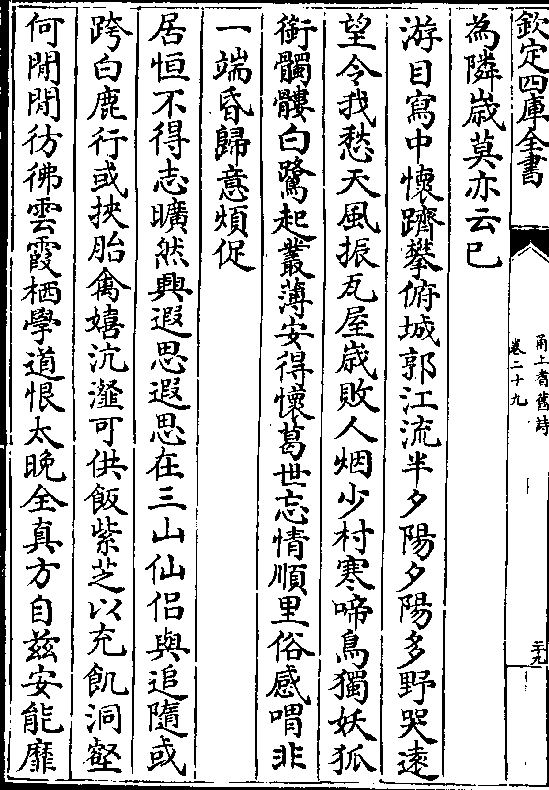 欽定四庫全書
甬上耆舊詩
卷二十九
二十九
為隣歳莫亦云已
游目寫中懷躋攀俯城郭江流半夕陽夕陽多野哭逺
望令我愁天風振瓦屋歳敗人烟少村寒啼鳥獨妖狐
銜髑髏白鷺起叢薄安得懷葛世忘情順里俗感喟非
一端昏歸意煩促
居恒不得志曠然興遐思遐思在三山仙侣與追隨或
跨白鹿行或挾胎禽嬉沆瀣可供飯紫芝以充飢洞壑
何閒閒彷彿雲霞栖學道恨太晚全真方自兹安能靡